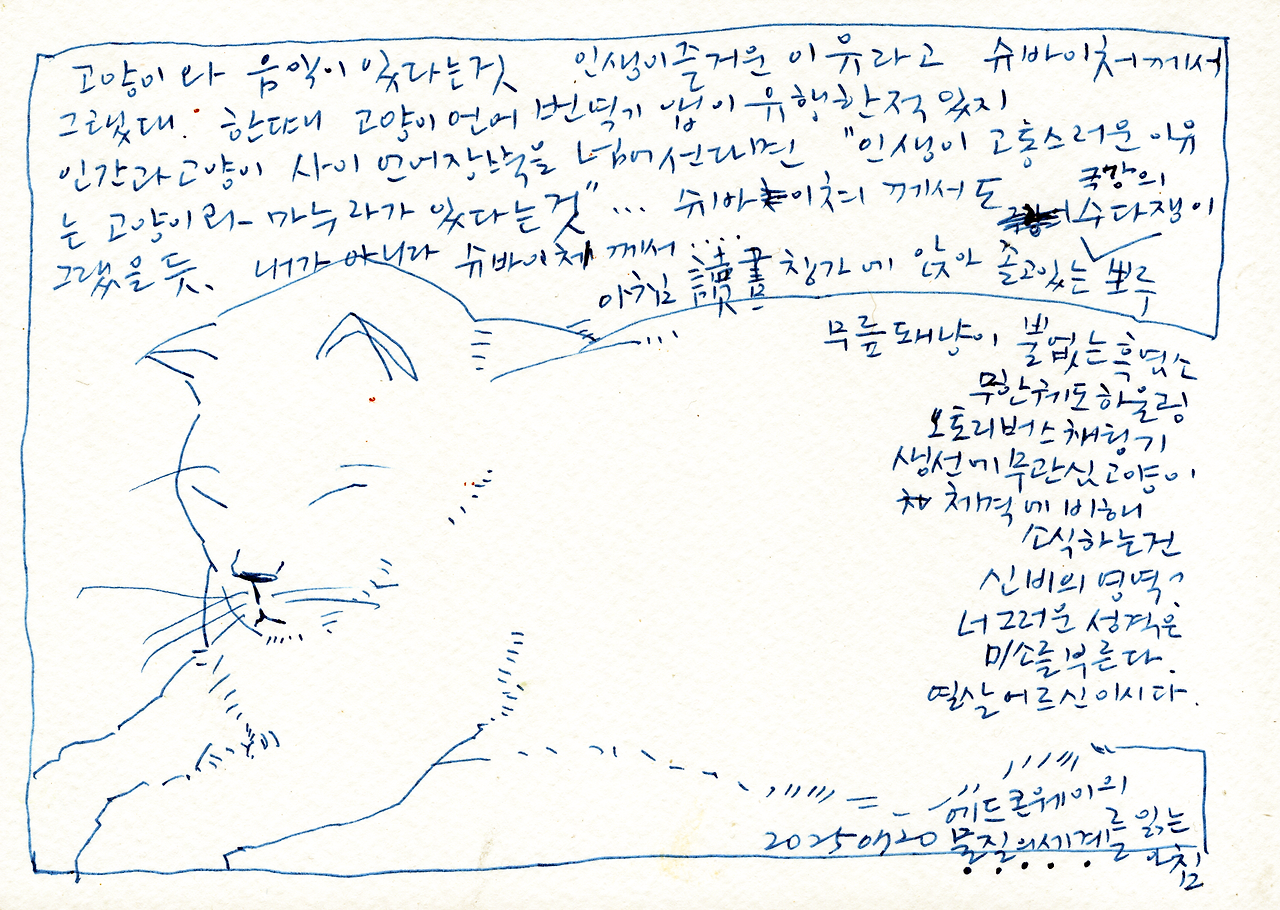 고양이와 음악이 있다는것 인생이즐거운 이유라고 슈바이처께서
그랬대. 한때 고양이언어 번역기 앱이 유행한적 있지
인간과고양이 사이 언어장벽을 넘어선다면 "인생이 고통스러운 이유
는 고양이와 마누라가 있다는것"... 슈바이처 께서도 극강의 수다쟁이
그랬을 듯. 내가 아니라 슈바이처 께서....
아침 讀書 창가에 앉아 졸고있는 뽀루
무릎돼냥이 뿔없는흑염소
무한궤도하울링
오토리버스채팅기
생선에무관심고양이
체격에 비해
소식하는건
신비의 영역?
너그러운 성격은
미소를부른다.
열살어르신이시다.
에드콘웨이의
20250920 물질의세계를 읽는
아침